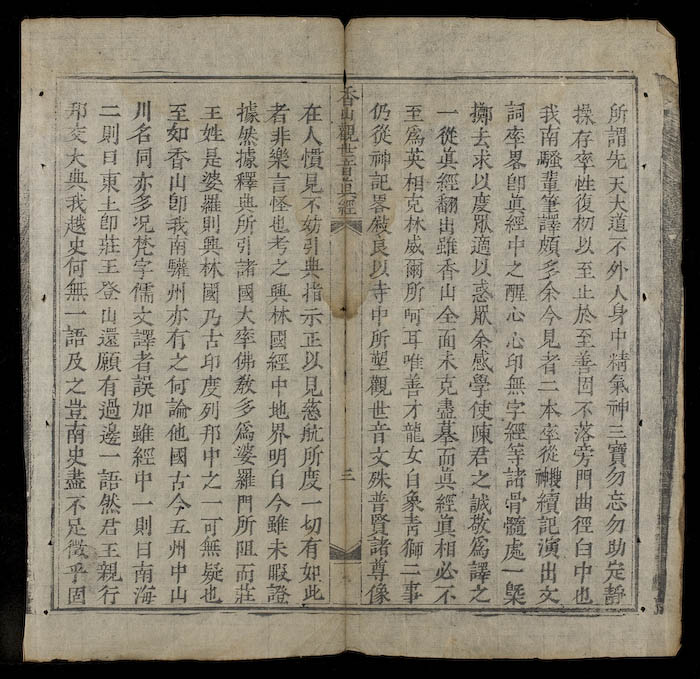 所謂先天大道不外人身中精氣神三寶勿忘勿助定靜
操存率性復初以至止於至善固不落旁門曲徑白中也
我南騷輩筆譯頗多余今見者二本率從搜神續記演出文
詞率畧卽眞經中之醒心心印無字經等諸骨髓處一槩
擲去求以度厭適以惑厭余感學使陳君之誠敬爲譯之
一從眞經翻出雖香山全面未克盡摹而眞經眞相必不
至爲英相克林威爾所呵耳唯善才龍女白象靑獅二事
仍從神記畧嚴良以寺中所塑觀世音文殊普賢諸尊像
香山觀世音眞經
三
在人慣見不妨引典指示正以見慈航所度一切有如此
者非樂言怪也考之興林國經中地界明白今雖未暇證
據然據釋典所引諸國大率佛敎多爲婆羅門所阻而莊
王姓是婆羅則興林國乃古印度列邦中之一可無疑也
至如香山卽我南驩州亦有之何論他國古今五州中山
川名同亦多况梵字儒文譯者誤加雖經中一則曰南海
二則曰東土卽莊王登山還願有過邊一語然君王親行
邦交大典我越史何無一語及之豈南史盡不足徵乎固